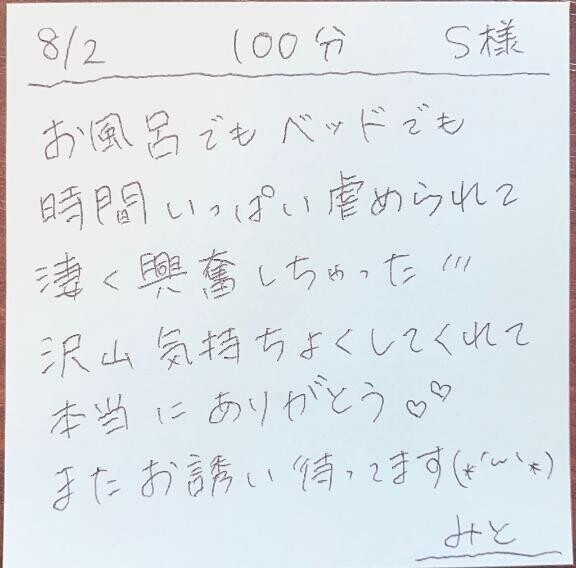 8/2 100分 S様
お風呂でもベッドでも
時間いっぱい虐められて
凄く興奮しちゃった///
沢山気持ちよくしてくれて
本当にありがとう♡♡
またお誘い待ってます(*´〰`*)
みと